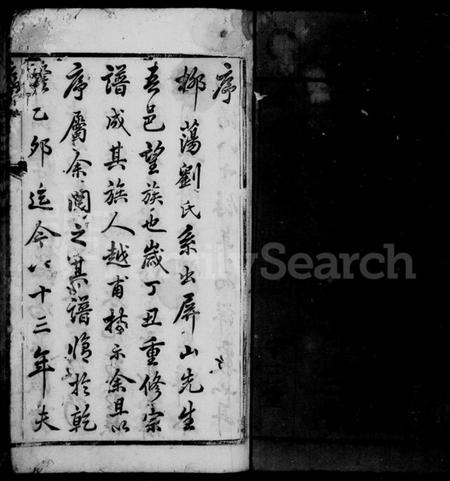 序
柳蕩劉氏系出屏山先生
吾邑望族也歲丁丑重修宗
譜成其族人越甫持示余且以
序屬余閱之其譜脩於乾
隆乙卯迄今八十三年夫
FamilySearch